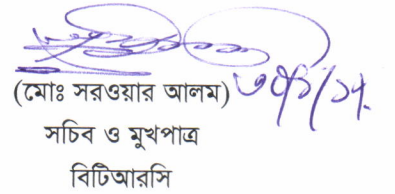 (মোঃ সরওয়ার আলম)
সচিব ও মুখপাত্র
বিটিআরসি